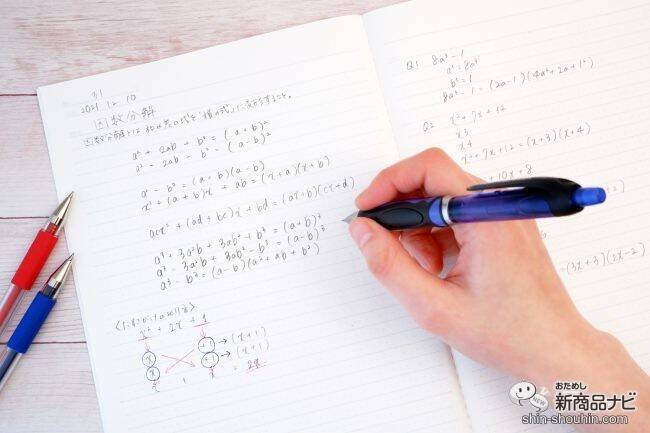 2021.12.10
因数分解
a² + 2ab + b² = (a+b)²
a² - 2ab - b² = (a-b)²
a² - b² = (a+b)(a-b)
x² + (a+b)x + ab = (x+a)(x+b)
acx² + (ad+bc)x + bd = (ax+b)(cx+d)
a³ + 3a²b + 3ab² + b³ = (a+b)³
a³ - 3a²b + 3ab² - b³ = (a-b)³
a³ - b³ = (a-b)(a²+ab+b²)
x² + 2x + 1
+1 → (x+1)
x +1 → (x+1)
= 2x
Q1 8a³ - 1
b³ = 1
8a³ - 1 = (2a-1)(4a²+2a+1²)
Q2 x² + 7x + 12
x3
x4
x² + 7x + 12 = (x+3)(x+4)
+ 10x + 8
+2)
= (3x+3)(2x-2)
おためし
新商品ナビ
NEW
shin-shouhin.com